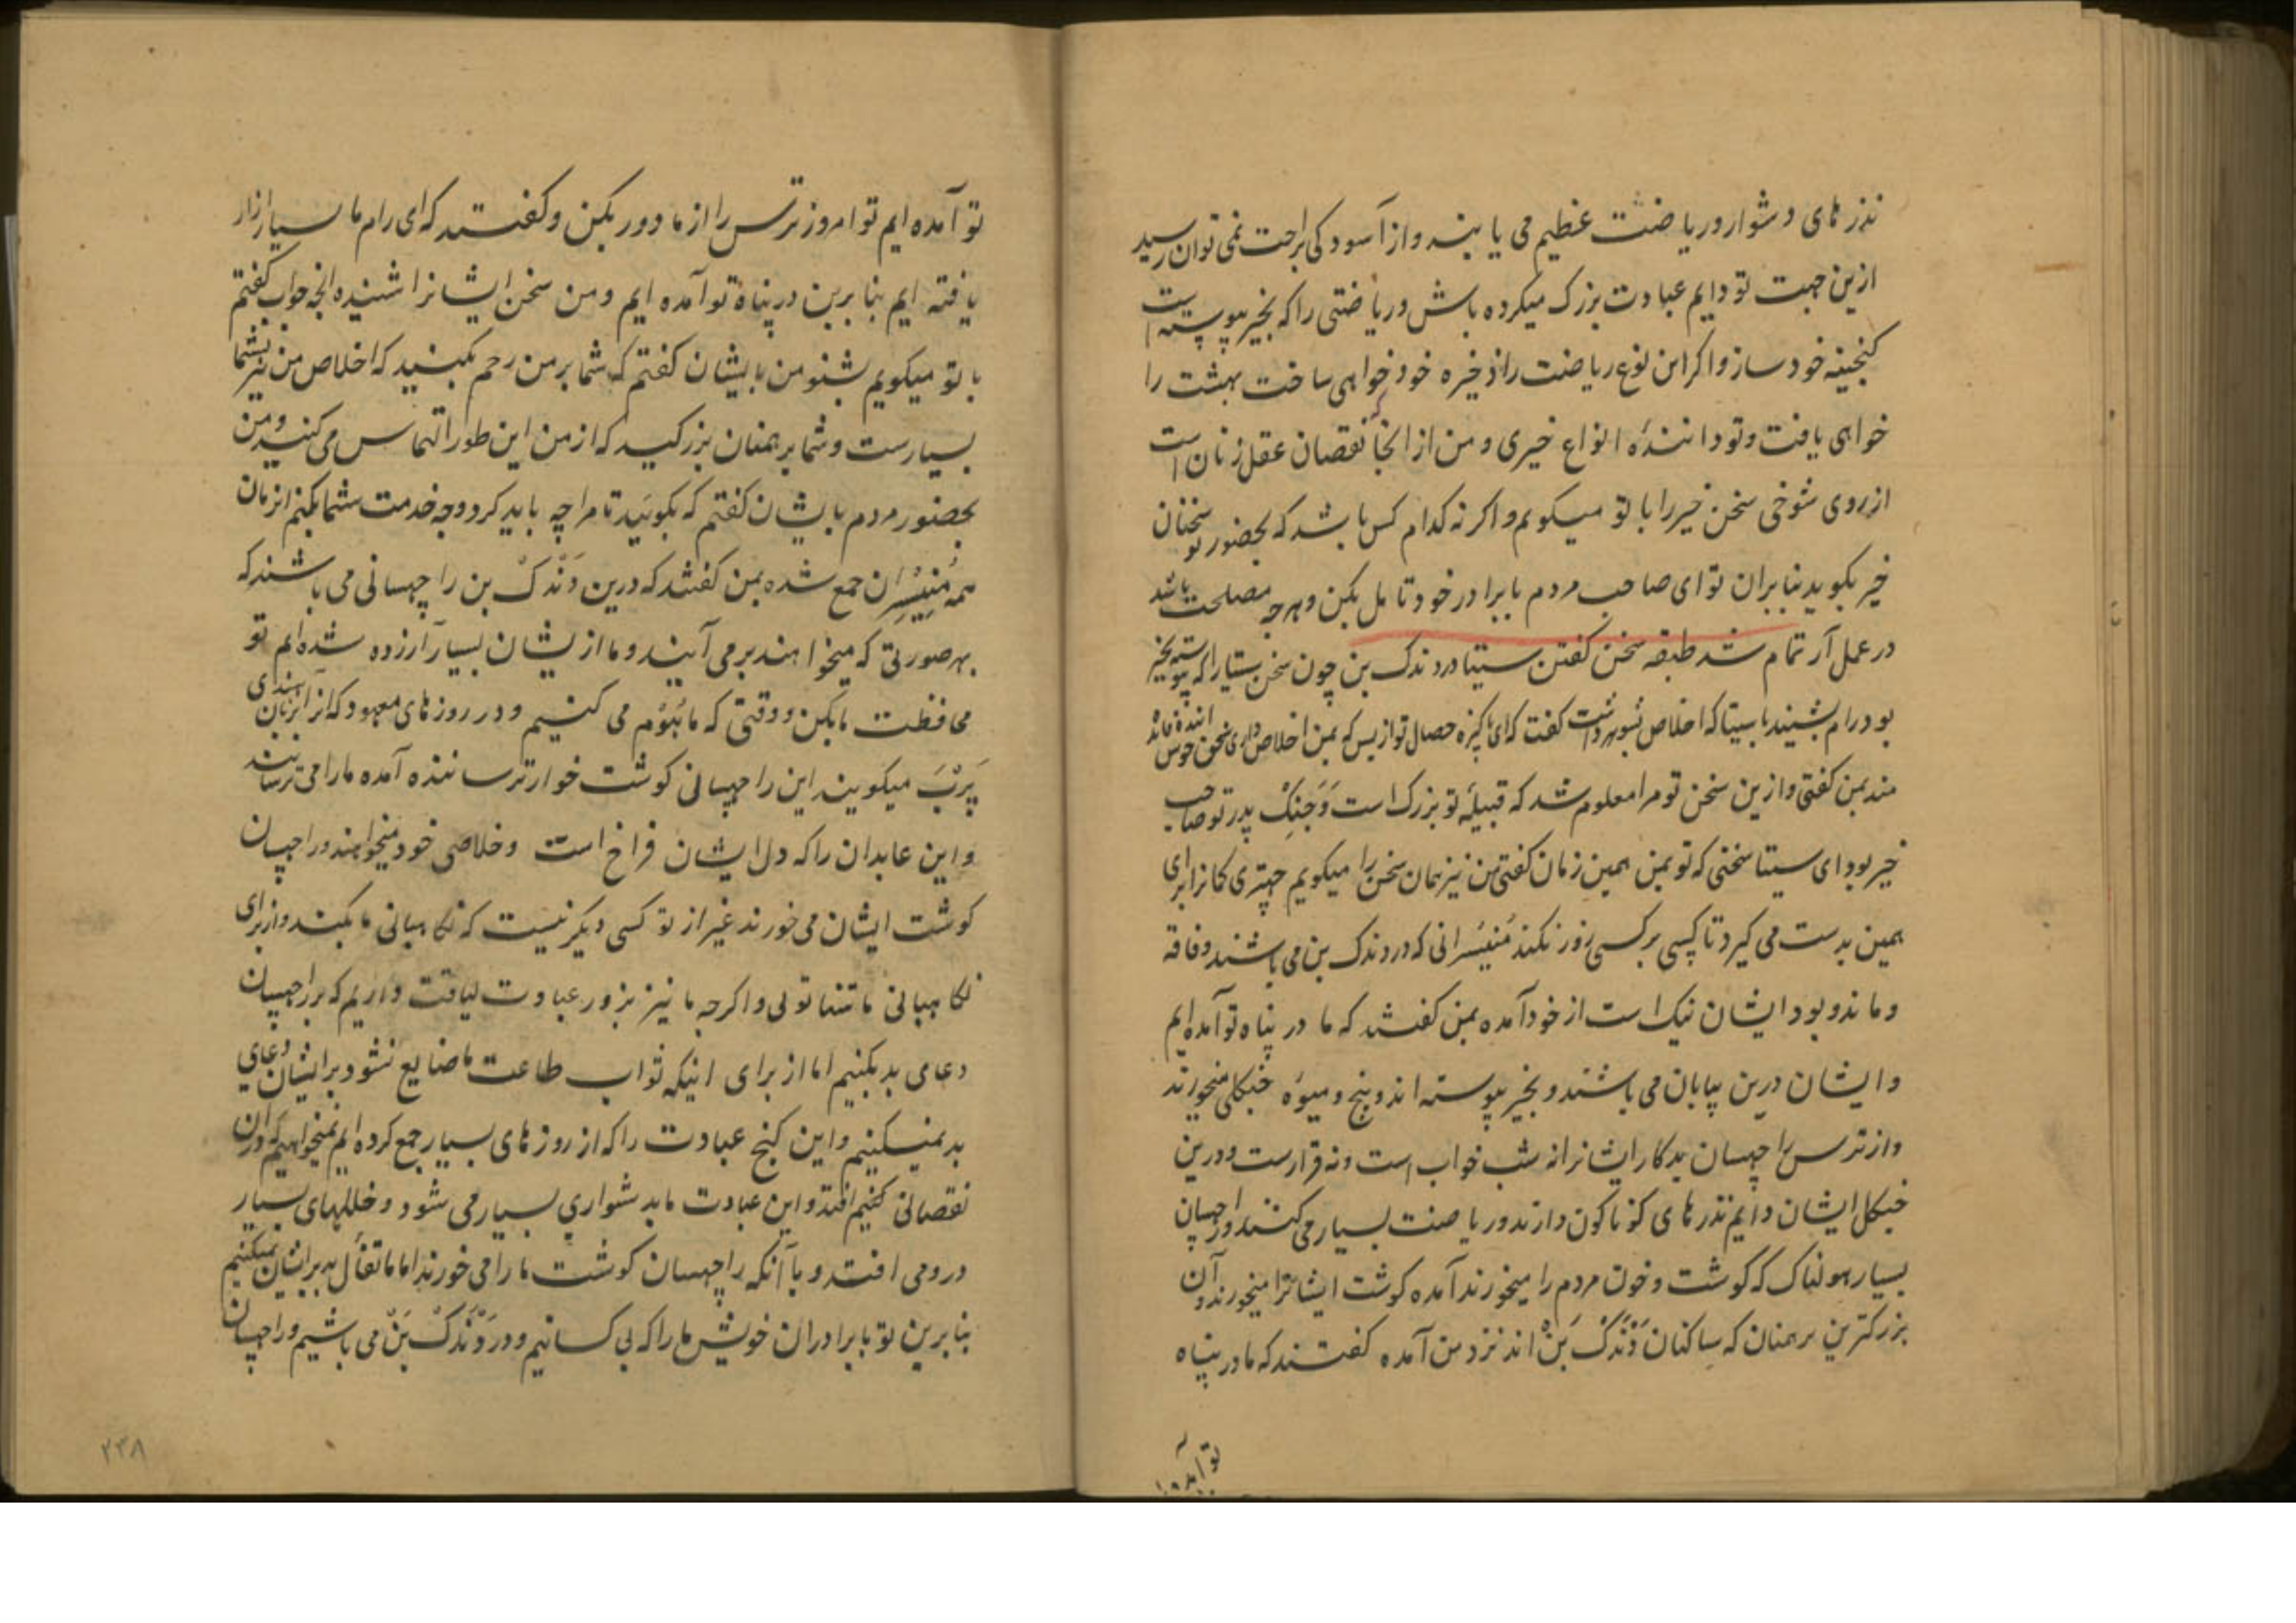 نذر های دشوار و ریاضت عظیم می یابند و از آسودکی براحت نمی توان رسید
ازین جهت تو دایم عبادت بزرک میکرده باش و ریاضتی را که بخیر پیوسته است
کنجینه خود ساز و اکر این نوع ریاضت را ذخیره خود خواهی ساخت بهشت را
خواهی یافت و تو دانندهٔ انواع خیری و من از انجا که نقصان عقل زنان است
از روی شوخی سخن خیر را با تو میکویم و اکر نه کدام کس باشد که بحضور تو سخنان
خیر بکوید بنابران تو ای صاحب مردم با برادر خود تامل بکن و هرچه مصلحت باشد
در عمل آر تمام شد طبقه سخن کفتن سیتا در دندک بن چون سخن سیتا را که پیوسته بخیر
بود رام بشنید با سیتا که اخلاص بشوهر داشت کفت که ای پاکیزه خصال تو از بس که بمن اخلاص داری سخن خوش
مند بمن کفتی و ازین سخن تو مرا معلوم شد که قبیلهٔ تو بزرک است و جنک پدر تو صاحب
خیر بود ای سیتا سخنی که تو بمن همین زمان کفتی من نیز همان سخن را میکویم چهتری کمانرا برای
همین بدست می کیرد تا کسی بر کسی زور نکند منیسرانی که در دندک بن می باشند و فاقه
و ماند و بود ایشان نیک است از خود آمده بمن کفتند که ما در پناه تو آمده ایم
و ایشان درین بیابان می باشند و بخیر پیوسته اند و بیخ و میوهٔ جنکلی میخورند
و از ترس راچهسان بدکار ایشانرا نه شب خواب است و نه قرارست و درین
جنکل ایشان دایم نذر های کوناکون دارند و ریاضت بسیار می کنند و راچهسان
بسیار هولناک که کوشت و خون مردم را میخورند آمده کوشت ایشانرا میخورند و آن
بزرکترین برهمنان که ساکنان دندک بن اند نزد من آمده کفتند که ما در پناه
تو آمده
تو آمده ایم تو امروز ترس را از ما دور بکن و کفتند که ای رام ما بسیار ازار
یافته ایم بنا برین در پناه تو آمده ایم و من سخن ایشانرا شنیده انچه جواب کفتم
با تو میکویم بشنو من بایشان کفتم که شما بر من رحم بکنید که اخلاص من نیز بشما
بسیارست و شما برهمنان بزرکید که از من این طور التماس می کنید و من
بحضور مردم بایشان کفتم که بکوئید تا مرا چه باید کرد و چه خدمت شما بکنم انزمان
همه منیسران جمع شده بمن کفتند که درین دندک بن راچهسانی می باشند که
بهر صورتی که میخواهند بر می آیند و ما ازیشان بسیار آزرده شده ایم تو
محافظت ما بکن و وقتی که ما هوم می کنیم و در روزهای معهود که انرا بزبان هندی
پرب میکویند این راچهسانی کوشت خوار ترساننده آمده ما را می ترسانند
و این عابدان را که دل ایشان فراخ است و خلاصی خود میخواهند و راچهسان
کوشت ایشان می خورند غیر از تو کسی دیکر نیست که نکاهبانی ما بکند و از برای
نکاهبانی ما تنها توئی و اکرچه ما نیز بزور عبادت لیاقت داریم که بر راچهسان
دعای بد بکنیم اما از برای انیکه ثواب طاعت ما ضایع نشود بر ایشان دعای
بد نمیکنیم و این کنج عبادت را که از روزهای بسیار جمع کرده ایم نمیخواهیم که دران
نقصانی افتد و این عبادت ما بدشواری بسیار می شود و خللهای بسیار
درو می افتد و با آنکه راچهسان کوشت ما را می خورند اما ما تفأل بد بر ایشان نمیکنیم
بنابرین تو با برادران خویش ما را که بی کسانیم و در دندک بن می باشیم و راچهسان
۲۳۸